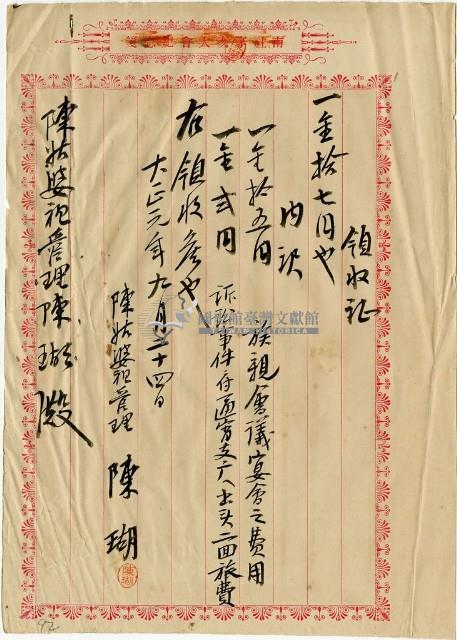 領收証
一金拾七円也
內訳
一金拾五円 族親會議宴會之費用
一金弍円 訴訟事件付通宵支厂八出頭二回旅費
右領收候也
大正元年九月二十四日
陳姑婆祀管理 陳瑚
陳瑚
陳姑婆祀管理陳瑚殿
國史館臺灣文獻館
TAIWAN HISTORICA